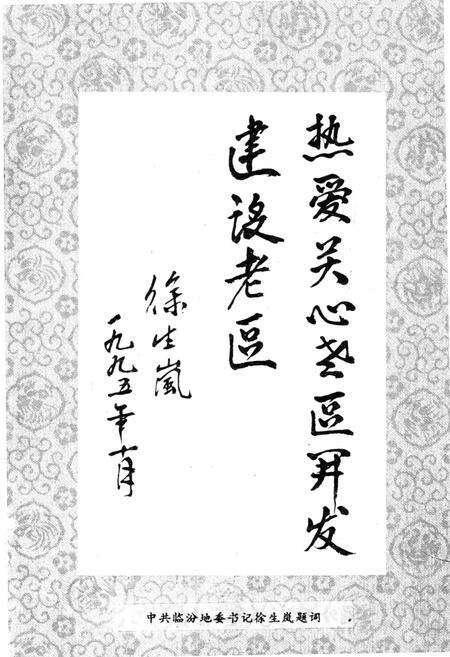 热爱关心老區开发
建设老區
徐生嵐
一九九五年十月
中共临汾地委书记徐生岚题词